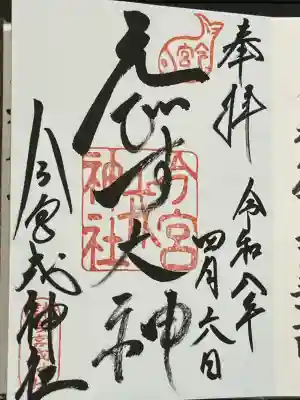 奉拝
令和八年
四月六日
えびす大神
今宮戎神社
今宮
今宮戎神社